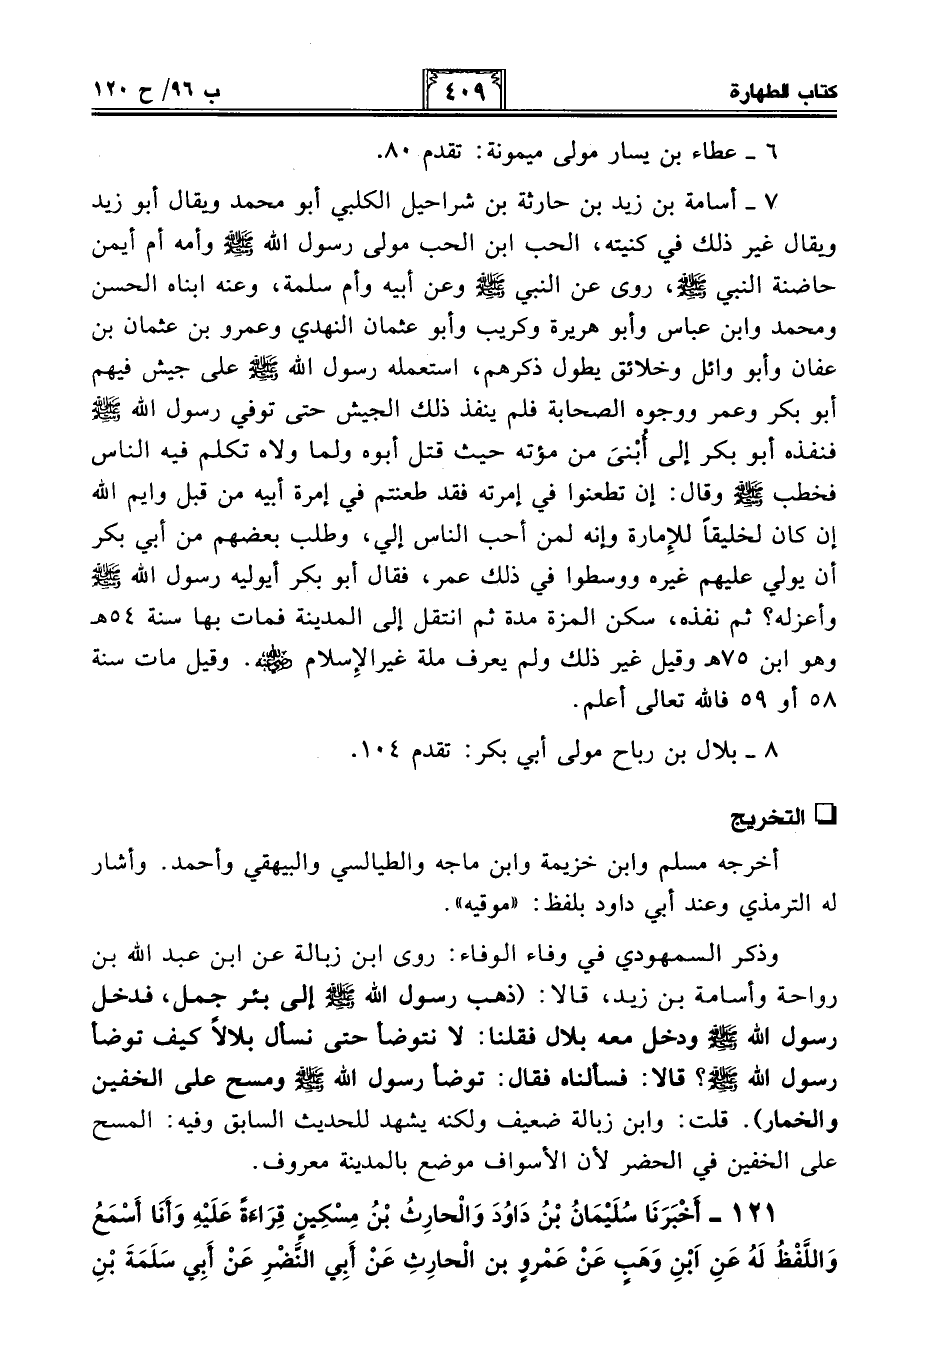 كتاب الطهارة ٤٠٩ ب ٩٦/ ح ١٢٠
٦ ـ عطاء بن يسار مولى ميمونة: تقدم ٨٠.
٧ ـ أسامة بن زيد بن حارثة بن شراحيل الكلبي أبو محمد ويقال أبو زيد
ويقال غير ذلك في كنيته، الحب ابن الحب مولى رسول الله ﷺ وأمه أم أيمن
حاضنة النبي ﷺ، روى عن النبي ﷺ وعن أبيه وأم سلمة، وعنه ابناه الحسن
ومحمد وابن عباس وأبو هريرة وكريب وأبو عثمان النهدي وعمرو بن عثمان بن
عفان وأبو وائل وخلائق يطول ذكرهم، استعمله رسول الله ﷺ على جيش فيهم
أبو بكر وعمر ووجوه الصحابة فلم ينفذ ذلك الجيش حتى توفي رسول الله ﷺ
فنفذه أبو بكر إلى أُبْنىَ من مؤته حيث قتل أبوه ولما ولاه تكلم فيه الناس
فخطب ﷺ وقال: إن تطعنوا في إمرته فقد طعنتم في إمرة أبيه من قبل وايم الله
إن كان لخليقاً للإمارة وإنه لمن أحب الناس إلي، وطلب بعضهم من أبي بكر
أن يولي عليهم غيره ووسطوا في ذلك عمر، فقال أبو بكر أيوليه رسول الله ﷺ
وأعزله؟ ثم نفذه، سكن المزة مدة ثم انتقل إلى المدينة فمات بها سنة ٥٤هـ
وهو ابن ٧٥هـ وقيل غير ذلك ولم يعرف ملة غيرالإسلام رضي الله عنه. وقيل مات سنة
٥٨ أو ٥٩ فالله تعالى أعلم.
٨ ـ بلال بن رباح مولى أبي بكر: تقدم ١٠٤.
❏ التخريج
أخرجه مسلم وابن خزيمة وابن ماجه والطيالسي والبيهقي وأحمد. وأشار
له الترمذي وعند أبي داود بلفظ: «موقيه».
وذكر السمهودي في وفاء الوفاء: روى ابن زبالة عن ابن عبد الله بن
رواحة وأسامة بن زيد، قالا: (ذهب رسول الله ﷺ إلى بئر جمل، فدخل
رسول الله ﷺ ودخل معه بلال فقلنا: لا نتوضأ حتى نسأل بلالاً كيف توضأ
رسول الله ﷺ؟ قالا: فسألناه فقال: توضأ رسول الله ﷺ ومسح على الخفين
والخمار). قلت: وابن زبالة ضعيف ولكنه يشهد للحديث السابق وفيه: المسح
على الخفين في الحضر لأن الأسواف موضع بالمدينة معروف.
١٢١ ـ أَخْبَرَنَا سُلَيْمَانُ بْنُ دَاوُدَ وَالْحارِثُ بْنُ مِسْكِينٍ قِرَاءَةً عَلَيْهِ وَأَنَا أَسْمَعُ
وَاللَّفْظُ لَهُ عَنِ ابْنِ وَهَبٍ عَنْ عَمْرِو بن الْحارِثِ عَنْ أَبِي النَّضْرِ عَنْ أَبِي سَلَمَةَ بْنِ